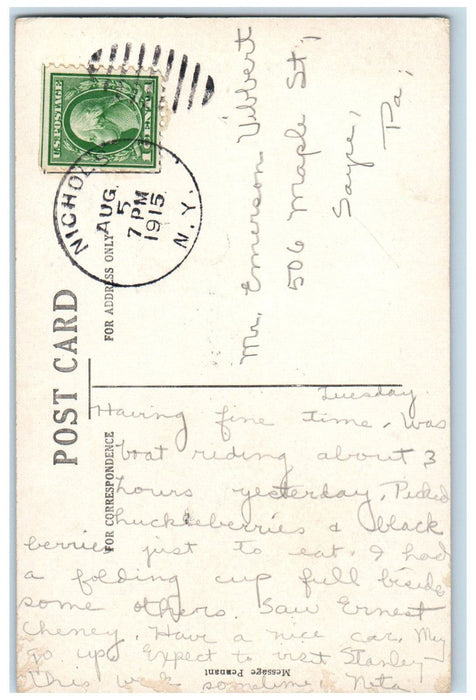 U.S. POSTAGE
1 CENT 1
NICHOLS
AUG.
5
7 PM
1915
N.Y.
POST CARD
FOR ADDRESS ONLY
FOR CORRESPONDENCE
Mr. Emerson Vibbert
506 Maple St,
Sayre,
Pa,
Tuesday
Having fine time. Was
boat riding about 3
hours yesterday. Picked
huckleberries & black
berries just to eat. I had
a folding cup full beside
some others. Saw Ernest
Cheney. Have a nice car. May
go up. Expect to visit Stanley
this week sometime. Neta
Message Pennant